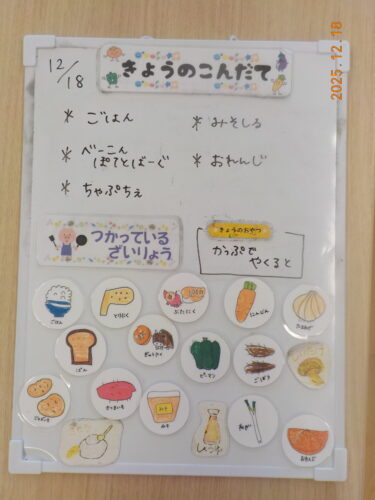 2025.12.18
12/18
きょうのこんだて
* ごはん
* みそしる
* べーこん
ぽてとばーぐ
* おれんじ
* ちゃぷちぇ
つかっている
ざいりょう
きょうのおやつ
かっぷで
やくると
ごはん
とりにく
ぶたにく
にんじん
たまねぎ
ぱん
ぎゅうにく
ピーマン
ごぼう
じゃがいも
さつまいも
みそ
みそ
しょうゆ
ねぎ
おれんじ